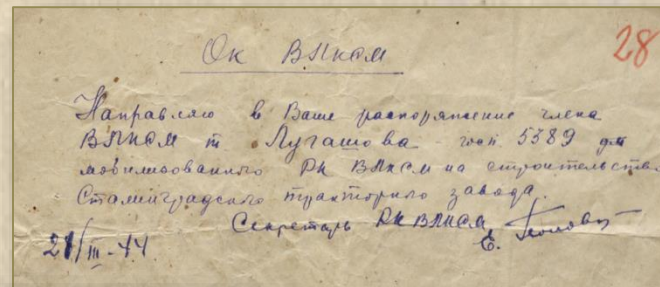 Ок ВЛКСМ
28
Направляю в Ваше распоряжение члена
ВЛКСМ т. Лугашова 5389 для
мобилизованного РК ВЛКСМ на строительств
Сталинградского тракторного завода
Секретарь РК ВЛКСМ
21/III-44.
Е.